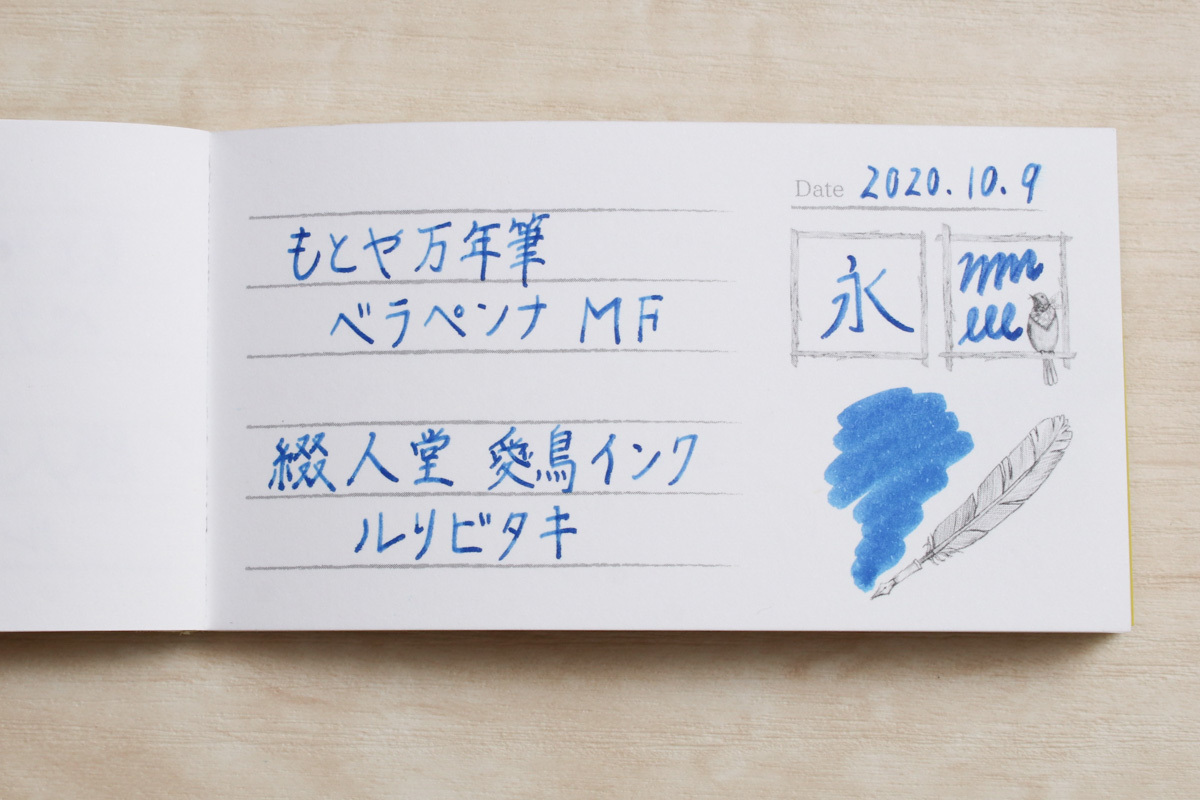 Date 2020.10.9
もとや万年筆
ベラペンナ MF
永
綴人堂 愛鳥インク
ルリビタキ